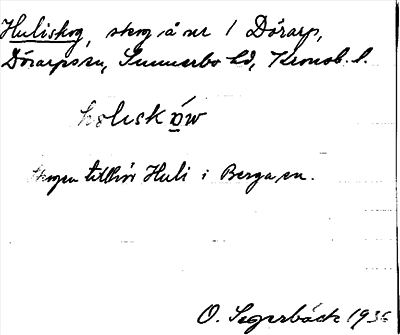 Huliskog, skog å nr 1 Dörarp,
Dörarps sn, Sunnerbo hd, Kronob. l.
hòlıskɷ̀w
Skogen tillhör Huli i Berga sn.
O. Segerbäck 1936